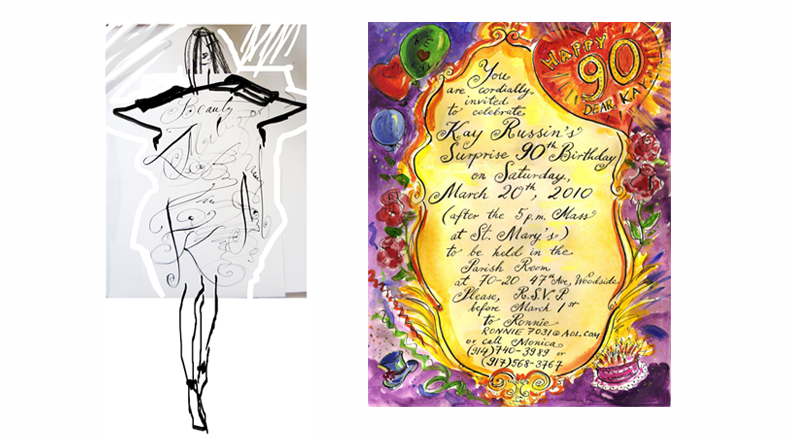 Beauty
HAPPY
90
DEAR KAY
You
are cordially
invited
to celebrate
Kay Russin's
Surprise 90th Birthday
on Saturday,
March 20th, 2010
(after the 5 p.m. Mass
at St. Mary's)
to be held in the
Parish Room
at 70-20 47th Ave, Woodside
Please, R.S.V.P.
before March 1st
to Ronnie
RONNIE7031@AOL.COM
or call Monica
(914)740-3989 or
(917)568-3767